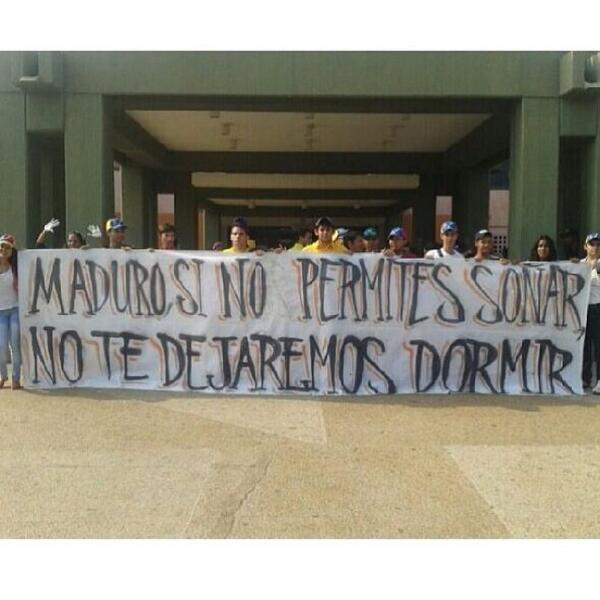 MADURO, SI NO PERMITES SOÑAR,
NO TE DEJAREMOS DORMIR